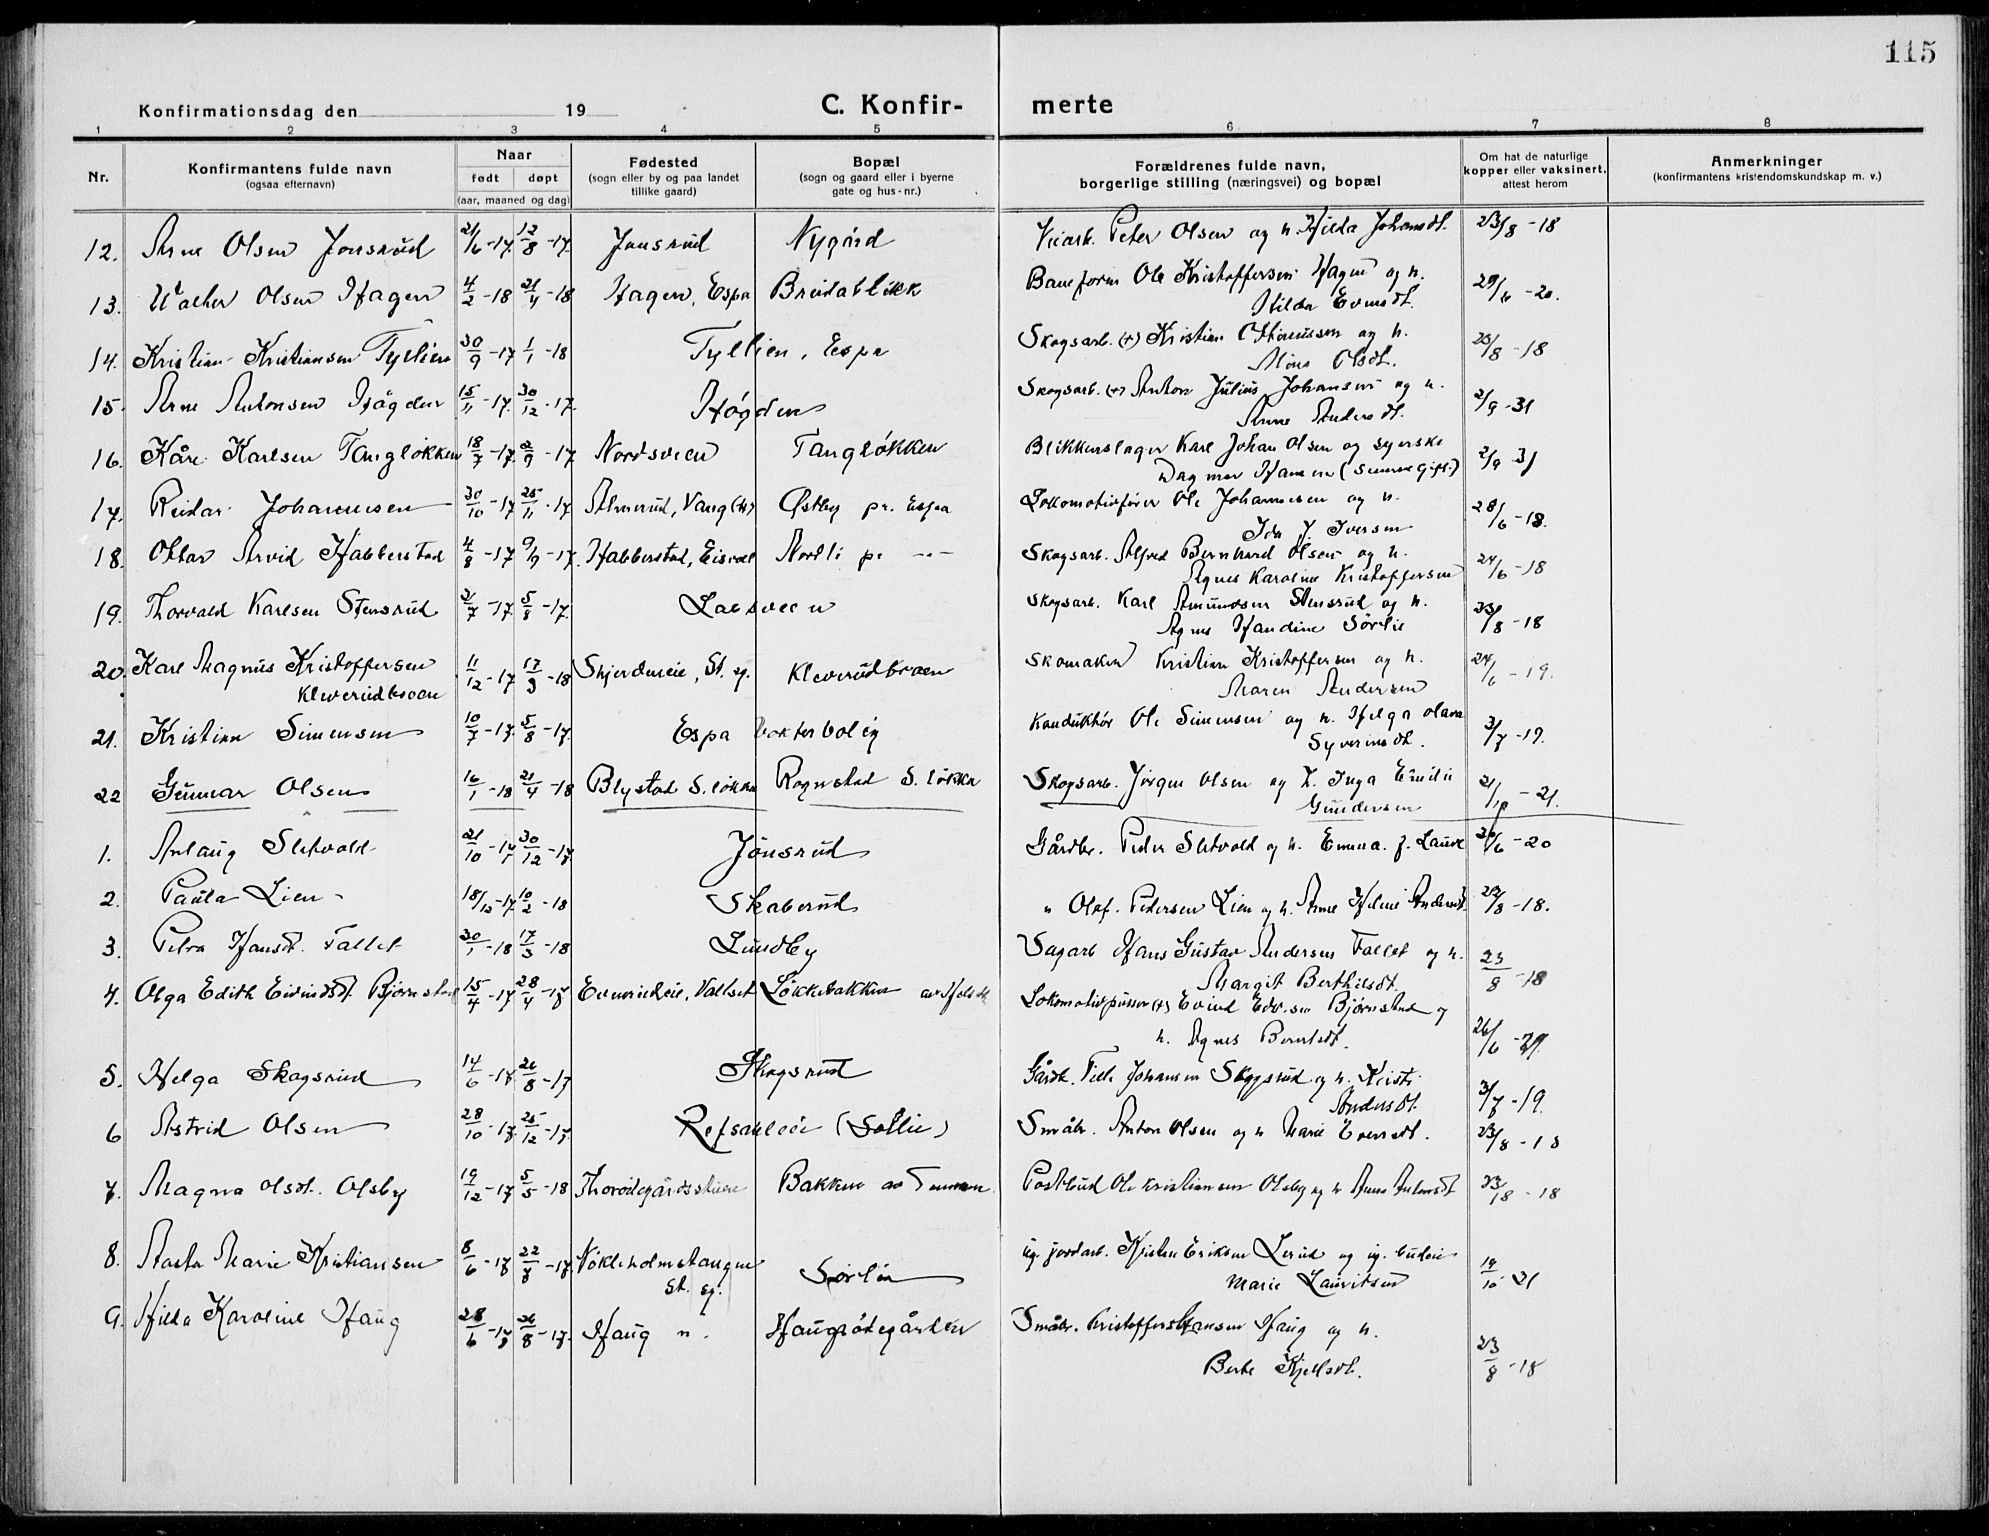 115
Konfirmationsdag den 19 C. Konfir- merte
1 2 3 4 5 6 7 8
Nr. Konfirmantens fulde navn (ogsaa efternavn) Naar født døpt (aar, maaned og dag) Fødested (sogn eller by og paa landet tillike gaard) Bopæl (sogn og gaard eller i byerne gate og hus-nr.) Forældrenes fulde navn, borgerlige stilling (næringsvei) og bopæl Om hat de naturlige kopper eller vaksinert, attest herom Anmerkninger (konfirmantens kristendomskundskap m. v.)
12. Arne Olsen Jonsrud 21/6-17 12/8-17. Jonsrud Nygård Peter Olsen og h. Hilda Johansdt. 23/8-18
13. Walter Olsen Hagen 4/2-18 21/4-18 Hagen, Espa Breidablikk Baneform Ole Kristoffersen Hagen og h.
Hilda Evensdt. 29/6-20.
14. Kristian Kristiansen Tyllien 30/9-17 1/1-18 Tyllien, Espa Skogsarb. (+) Kristian Ottinussen og h.
Mina Olsdt. 23/8-18
15. Arne Antonsen Høgden 15/11-17. 30/12-17. Høgden Skogsarb. (+) Anton Julius Johansen og h.
Anne Andersdt. 2/9-31
16. Kåre Karlsen Tangløkken 18/7-17. 2/9-17 Nordsveen Tangløkken Blikkenslager Karl Johan Olsen og syerske
Dagmar Hansen (senere gift.) 2/9-31
17. Reidar Johannesen 30/10-17 25/11-17 Almerud, Vang (H) Østby pr. Espa Lokomotivfører Ole Johannesen og h.
Ida J. Iversen 28/6-18.
18. Ottar Arvid Habberstad 4/8-17 9/9-17. Habberstad, Eisvoll Nordli pr. -"- Skogsarb. Alfred Bernhard Olsen og h.
Agnes Karoline Kristoffersen 24/6-18
19. Thorvald Karlsen Stensrud 21/7-17. 5/8-17. Labsveen Skogsarb. Karl Amundsen Stensrud og h.
Agnes Handine Sørlie 23/8-18
20. Karl Magnus Kristoffersen 11/12-17 17/3-18 Skjerdeneie, St. sg. Kleverudbroen Skomaker Kristian Kristoffersen og h.
Kleverudbroen Maren Andersen 24/6-19.
21. Kristian Simensen 10/7-17. 5/8-17. Espa vokterbolig Konduktør Ole Simensen og h. Helga Olava
Syverinsdt. 3/7-19.
22 Gunnar Olsen 16/1-18 21/4-18 Blystad S. løkka Rognstad S. løkka Skogsarb. Jørgen Olsen og h. Inga Emilie
Gundersen 21/10-21.
1. Aslaug Sletvold 21/10-17 30/12-17 Jønsrud Gårdbr. Peder Sletvold og h. Emma f. 20/6-20
2. Paula Lien 18/12-17. 10/2-18 Skaberud " Olaf Pedersen Lien og h. Anne Helene Andersdt. 23/8-18.
3. Petra Hansdt. Fallet 30/1-18 17/3-18 Lundby Sagarb. Hans Gustav Andersen Fallet og h.
Margit Berthilsdt. 23/8-18
4. Olga Edith Eivindsdt. Bjørnstad 15/4-17 28/4-18 Evenrudeie, Vallset Løkkebakken av Lokomotivpusser (+) Eivind Bjørnstad og
h. Agnes Berntsdt. 26/6-29.
5. Helga Skogsrud 14/6-17 26/8-17 Skogsrud Gårdb. Johansen Skogsrud og h. Kristi
Andersdt. 3/7-19.
6 Astrid Olsen 28/10-17 25/12-17. Refsahleie (Sollie) Småbr. Anton Olsen og h Marie Evensdt. 23/8-18
7. Magna Olsdt. Olsby 19/12-17 5/5-18 Thorødegårdsstuen Bakken av Postbud Ole Kristiansen Olsby og h Anne Antonsdt 23/8-18
8. Aasta Marie Kristiansen 8/6-17 22/8-17 Nøkleholmstangen Sørlien ug. jordarb. Kristen Eriksen Lerud og ug. budeie
St. sg. Marie Lauritsen 19/10-31
9. Hilda Karoline Haug 28/6-17 26/8-17. Haug n. Haugrødegården Småbr. Kristoffer Hansen Haug og h.
Berte Kjellsdt. 23/8-18